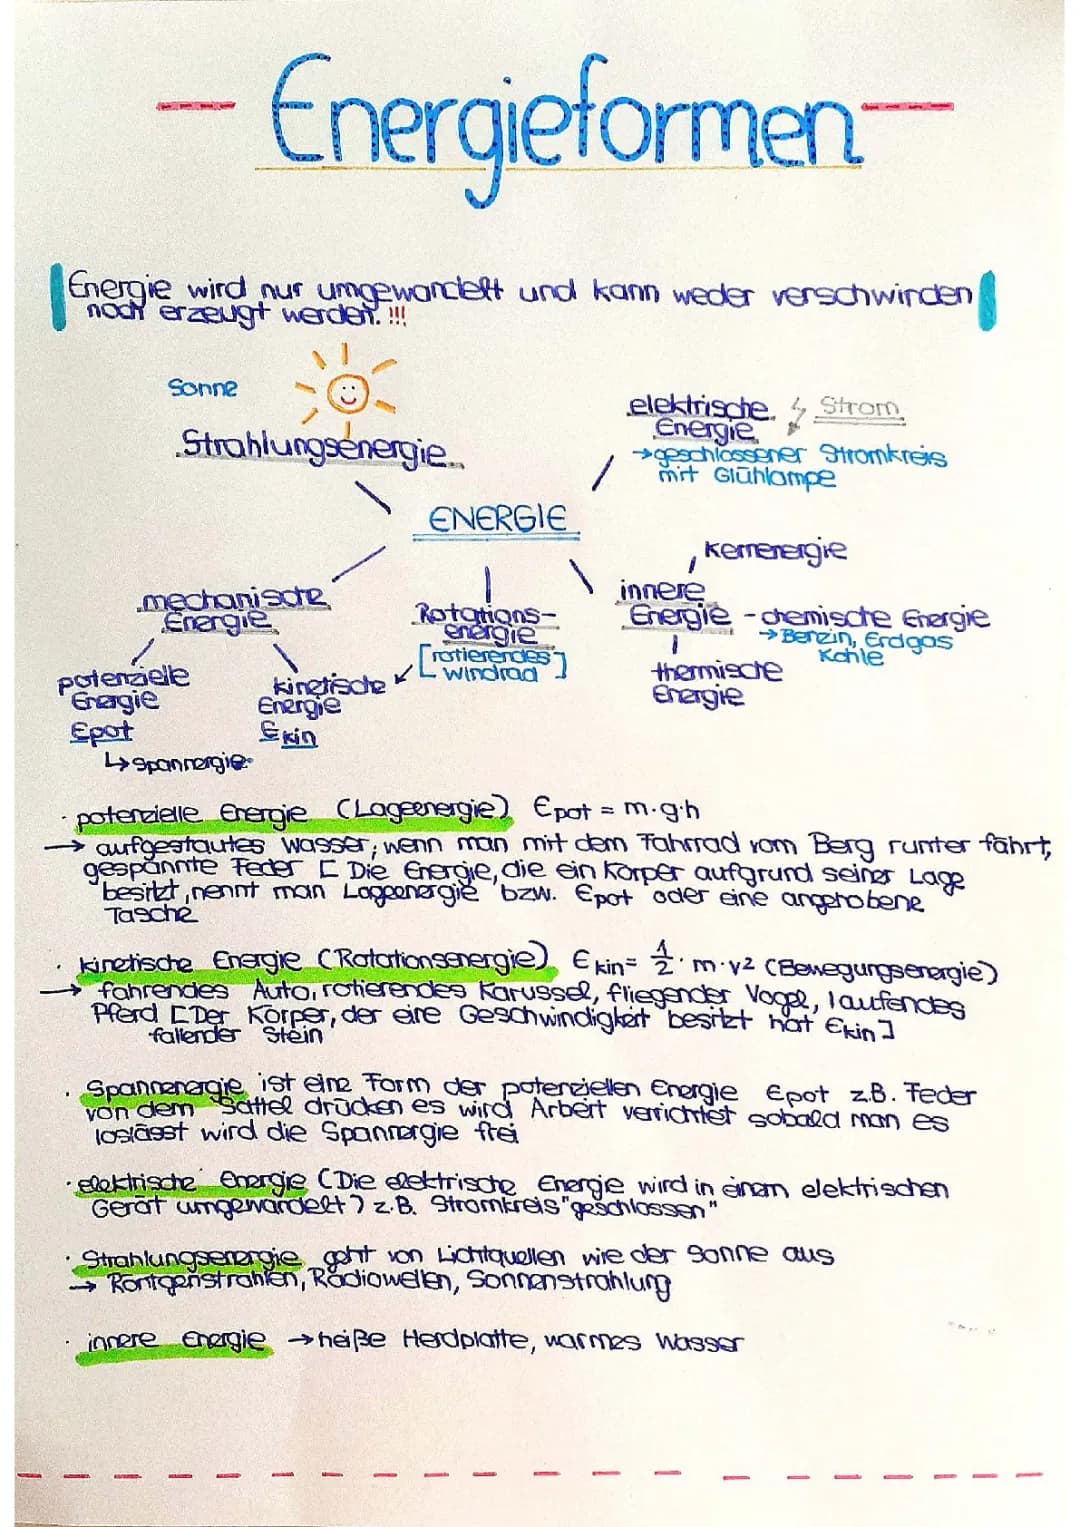 Energieformen
Energie wird nur umgewandelt und kann weder verschwinden
noch erzeugt werden. !!!
Sonne
Strahlungsenergie
elektrische Strom
Energie
→geschlossener Stromkreis
mit Glühlampe
ENERGIE
Kernenergie
mechanische
Energie
Rotations-
energie
[rotierendes
windrad]
innere
Energie - chemische Energie
→Benzin, Erdgas
Kohle
thermische
Energie
potenzielle
Energie
Epot
↳Spannergie
kinetische
Energie
Ekin
· potenzielle Energie (Lageenergie) Epot = m·g·h
→ aufgestautes Wasser, wenn man mit dem Fahrrad vom Berg runter fährt,
gespannte Feder [ Die Energie, die ein Körper aufgrund seiner Lage
besitzt, nennt man Lageenergie bzw. Epot oder eine angehobene
Tasche
· kinetische Energie (Rotationsenergie) Ekin= 1/2 · m·v² (Bewegungsenergie)
→ fahrendes Auto, rotierendes Karussel, fliegender Vogel, laufendes
Pferd [Der Körper, der eine Geschwindigkeit besitzt hat Ekin]
fallender Stein
· Spannenergie ist eine Form der potenziellen Energie Epot z.B. Feder
von dem Sattel drücken es wird Arbeit verrichtet sobald man es
loslässt wird die Spannergie frei
· elektrische Energie (Die elektrische Energie wird in einem elektrischen
Gerät umgewandelt) z.B. Stromkreis "geschlossen"
· Strahlungsenergie geht von Lichtquellen wie der Sonne aus
→ Röntgenstrahlen, Radiowellen, Sonnenstrahlung
· innere Energie →heiße Herdplatte, warmes Wasser